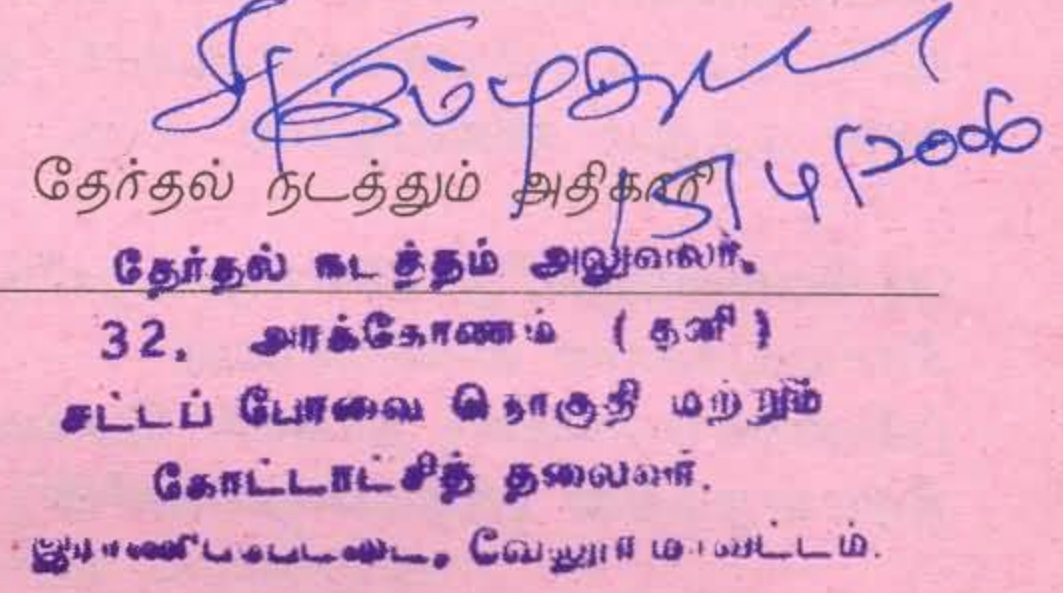 15/4/2006
தேர்தல் நடத்தும் அதிகாரி
தேர்தல் நடத்தும் அலுவலர்.
32. அரக்கோணம் (தனி)
சட்டப் பேரவை தொகுதி மற்றும்
கோட்டாட்சித் தலைவர்.
இராணிப்பேட்டை, வேலூர் மாவட்டம்.